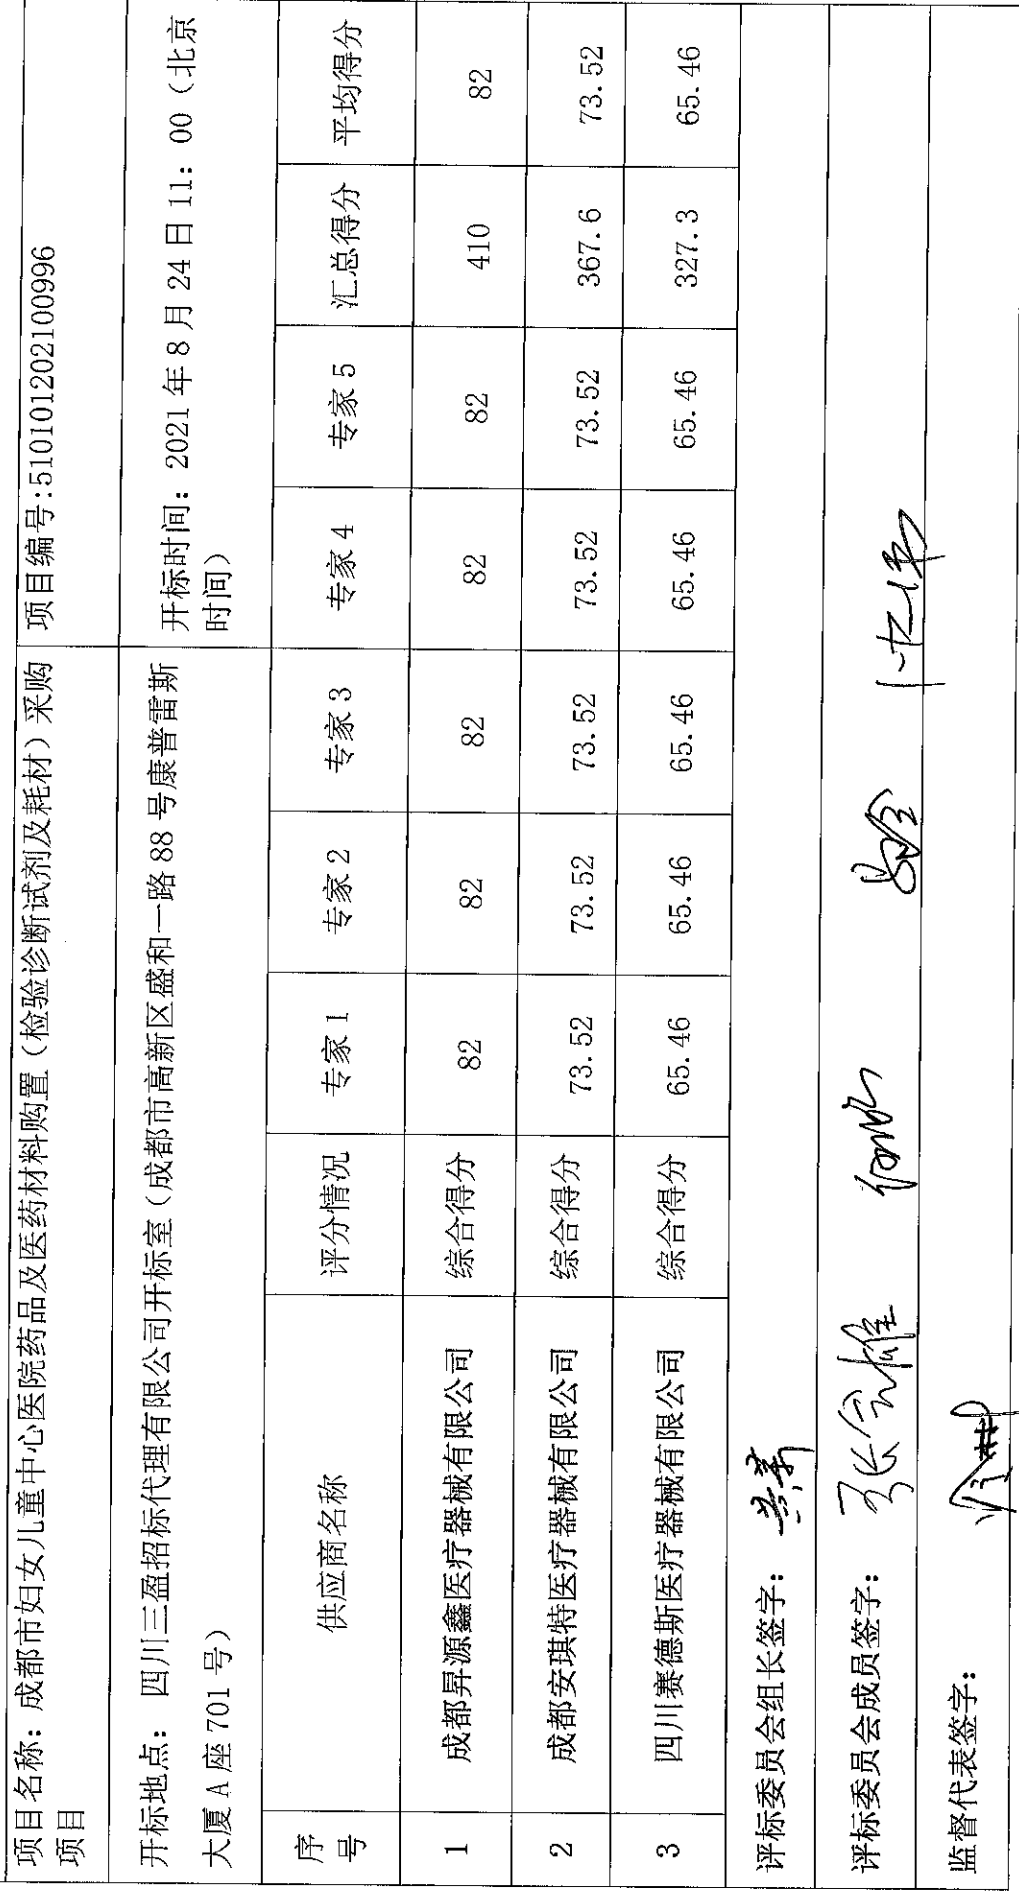 项目名称：成都市妇女儿童中心医院药品及医药材料购置（检验诊断试剂及耗材）采购
项目
项目编号:510101202100996
开标地点： 四川三盈招标代理有限公司开标室（成都市高新区盛和一路 88 号康普雷斯
大厦 A 座 701 号）
开标时间：2021 年 8 月 24 日 11：00（北京
时间）
序号 供应商名称 评分情况 专家 1 专家 2 专家 3 专家 4 专家 5 汇总得分 平均得分
1 成都昇源鑫医疗器械有限公司 综合得分 82 82 82 82 82 410 82
2 成都安琪特医疗器械有限公司 综合得分 73.52 73.52 73.52 73.52 73.52 367.6 73.52
3 四川赛德斯医疗器械有限公司 综合得分 65.46 65.46 65.46 65.46 65.46 327.3 65.46
评标委员会组长签字：
评标委员会成员签字：
监督代表签字：